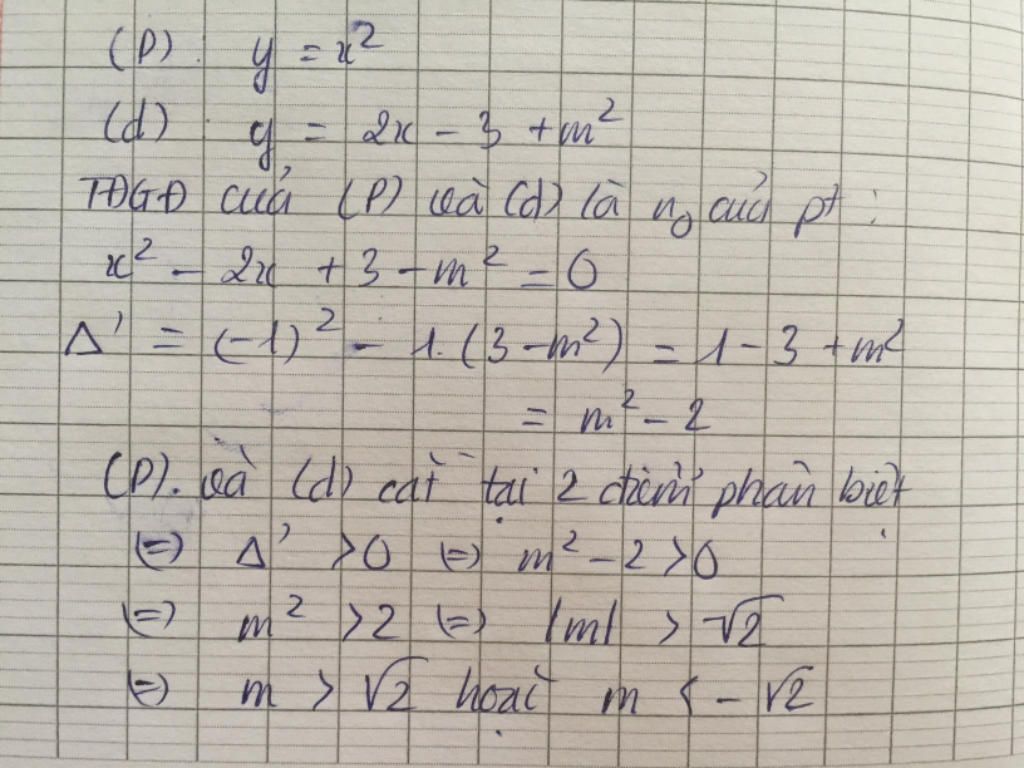 (P). y = x²
(d) . y = 2x - 3 + m²
TĐGĐ của (P) và (d) là n₀ của pt :
x² - 2x + 3 - m² = 0
Δ' = (-1)² - 1. (3 - m²) = 1 - 3 + m²
= m² - 2
(P). và (d) cắt tại 2 điểm phân biệt
(=) Δ' > 0 (=) m² - 2 > 0
(=) m² > 2 (=) |m| > √2
(=) m > √2 hoặc m < - √2